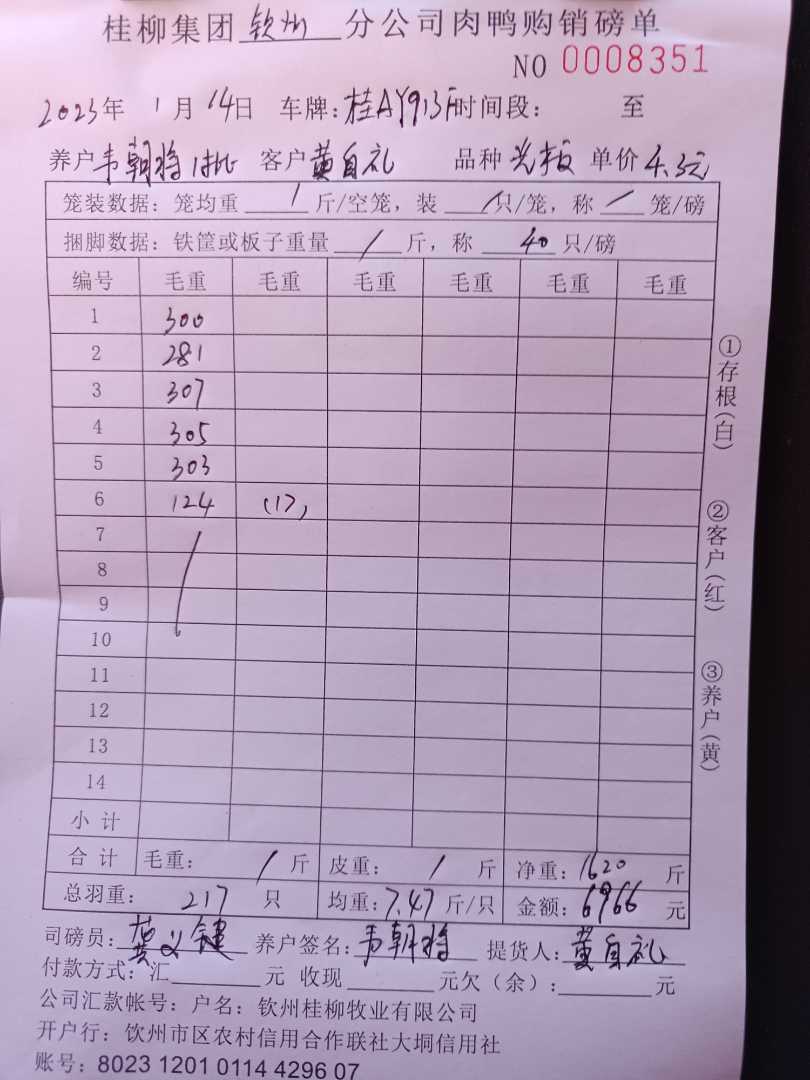 桂柳集团钦州分公司肉鸭购销磅单
NO 0008351
2023年 1月 14日 车牌:桂AY913F时间段: 至
养户韦朝将1批 客户黄自礼 品种光板 单价4.3元
笼装数据: 笼均重 / 斤/空笼, 装 / 只/笼, 称 / 笼/磅
捆脚数据: 铁筐或板子重量 / 斤, 称 40 只/磅
编号 毛重 毛重 毛重 毛重 毛重 毛重
1 300
2 281
3 307
4 305
5 303
6 124 (17)
7
8
9
10
11
12
13
14
小计
合计 毛重: / 斤 皮重: / 斤 净重: 1620 斤
总羽重: 217 只 均重: 7.47 斤/只 金额: 6966 元
司磅员: 黄义键 养户签名: 韦朝将 提货人: 黄自礼
付款方式: 汇 元 收现 元欠(余): 元
公司汇款帐号: 户名: 钦州桂柳牧业有限公司
开户行: 钦州市区农村信用合作联社大垌信用社
账号: 8023 1201 0114 4296 07
①存根(白)
②客户(红)
③养户(黄)